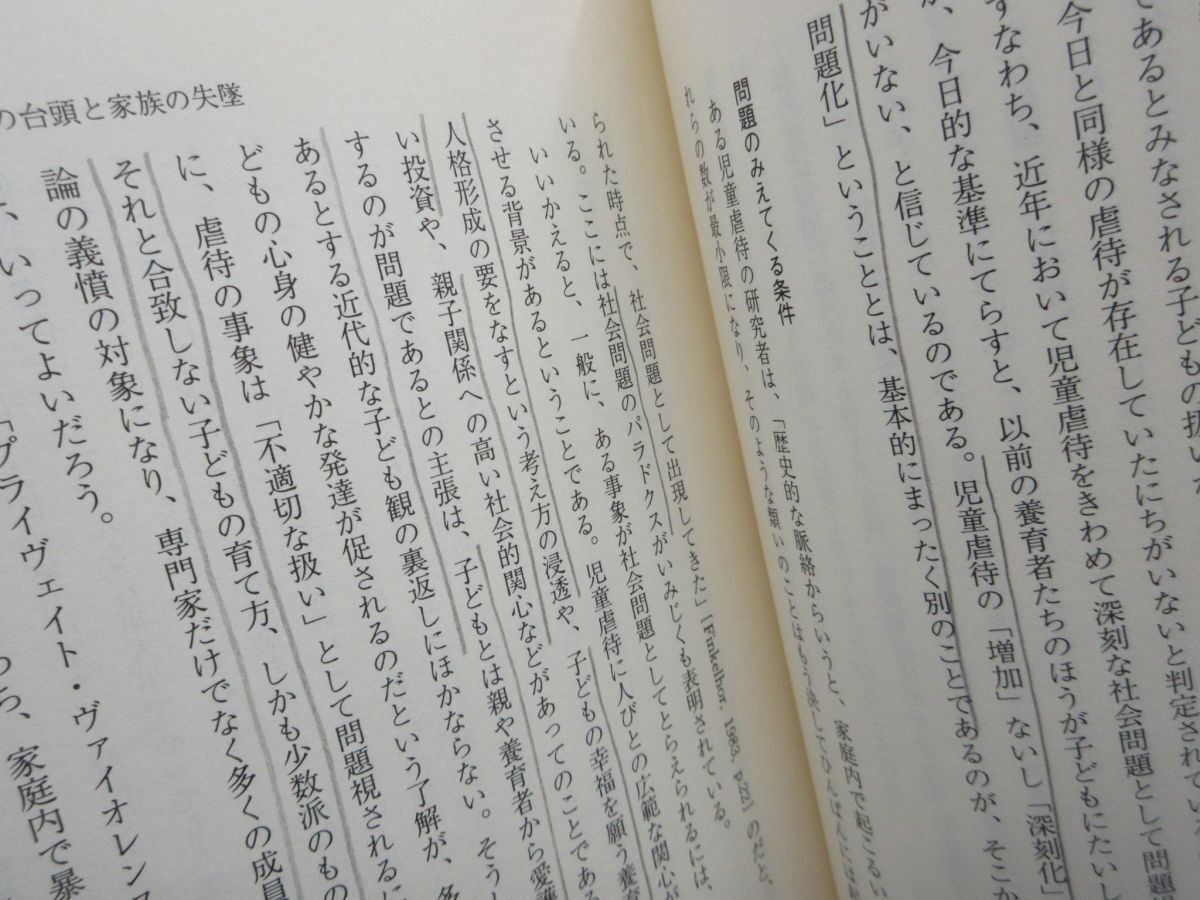 であるとみなされる子どもの扱い
今日と同様の虐待が存在していたにちがいないと判定されてい
すなわち、近年において児童虐待をきわめて深刻な社会問題として問題
、今日的な基準にてらすと、以前の養育者たちのほうが子どもにたいし
がいない、と信じているのである。児童虐待の「増加」ないし「深刻化」
問題化」ということとは、基本的にまったく別のことであるのが、そこか
問題のみえてくる条件
ある児童虐待の研究者は、「歴史的な脈絡からいうと、家庭内で起こるい
れらの数が最小限になり、そのような類いのことはもう決してひんぱんには
られた時点で、社会問題として出現してきた」[Finkelhor, 1983, p.22] のだと、
いる。ここには社会問題のパラドクスがいみじくも表明されている。
いいかえると、一般に、ある事象が社会問題としてとらえられるには、
させる背景があるということである。児童虐待に人びとの広範な関心が
人格形成の要をなすという考え方の浸透や、子どもの幸福を願う養育
い投資や、親子関係への高い社会的関心などがあってのことであ
するのが問題であるとの主張は、子どもとは親や養育者から愛護
あるとする近代的な子ども観の裏返しにほかならない。そう
どもの心身の健やかな発達が促されるのだという了解が、多
に、虐待の事象は「不適切な扱い」として問題視されるに
それと合致しない子どもの育て方、しかも少数派のもの
論の義憤の対象になり、専門家だけでなく多くの成員
、いってよいだろう。
「プライヴェイト・ヴァイオレンス
ち、家庭内で暴
の台頭と家族の失墜